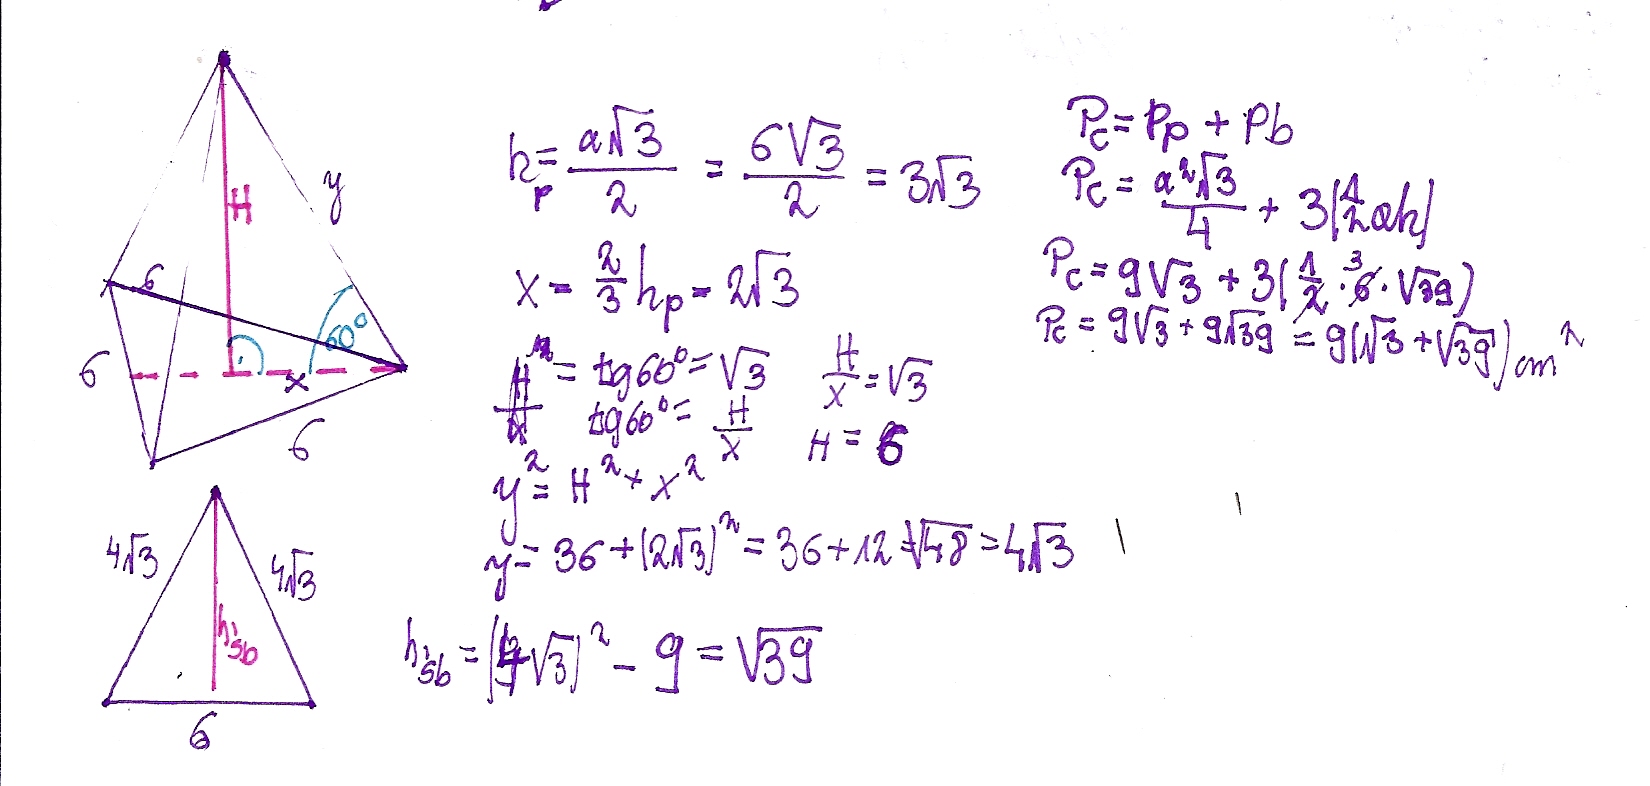 H
y
6
60°
6
x
6
4√3
4√3
h śb
6
hp = a√3/2 = 6√3/2 = 3√3
x = 2/3 hp = 2√3
= tg60° = √3
H/x = √3
tg60° = H/x
H = 6
y² = H² + x²
y = 36 + (2√3)² = 36 + 12 = √48 = 4√3
h śb = (4√3)² - 9 = √39
Pc = Pp + Pb
Pc = a²√3/4 + 3(1/2 ah)
Pc = 9√3 + 3(1/2 · 6 3 · √39)
Pc = 9√3 + 9√39 = 9(√3 + √39) cm²